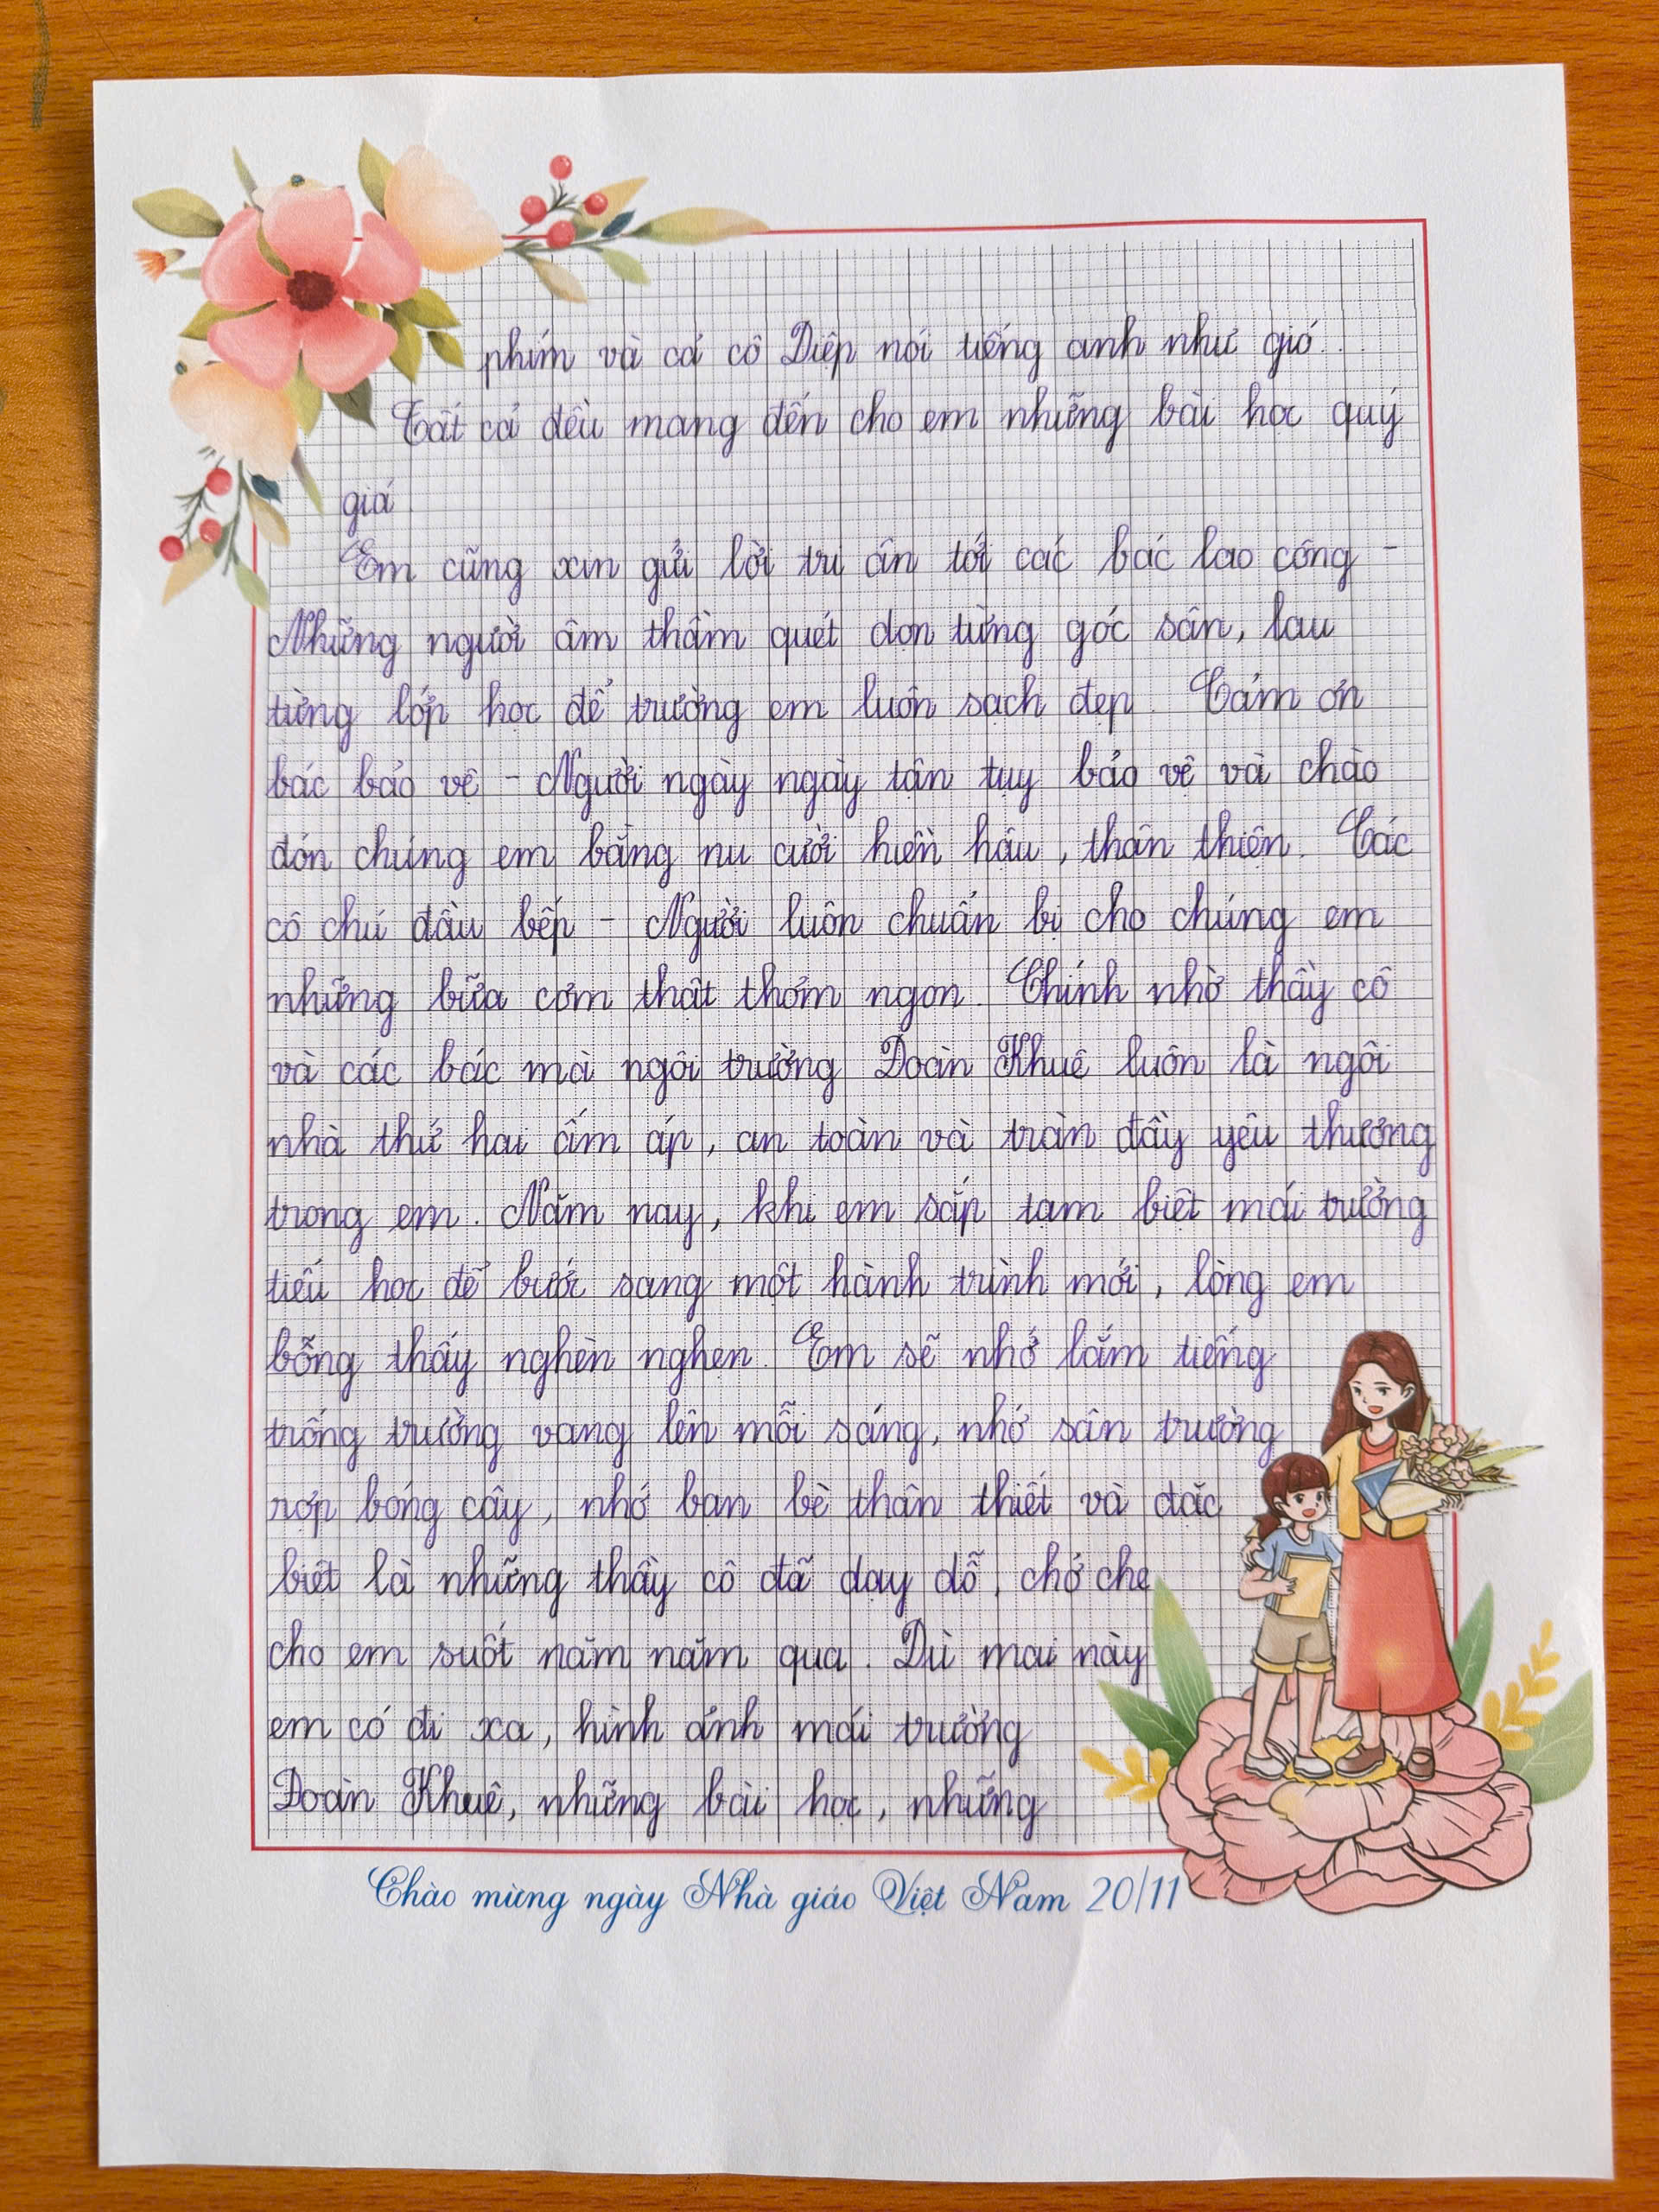 phím và cả cô Diệp nói tiếng anh như gió.
Tất cả đều mang đến cho em những bài học quý
giá.
Em cũng xin gửi lời tri ân tới các bác lao công -
Những người âm thầm quét dọn từng góc sân, lau
từng lớp học để trường em luôn sạch đẹp. Cảm ơn
bác bảo vệ - Người ngày ngày tận tụy bảo vệ và chào
đón chúng em bằng nụ cười hiền hậu, thân thiện. Các
cô chú đầu bếp - Người luôn chuẩn bị cho chúng em
những bữa cơm thật thơm ngon. Chính nhờ thầy cô
và các bác mà ngôi trường Đoàn Khuê luôn là ngôi
nhà thứ hai ấm áp, an toàn và tràn đầy yêu thương
trong em. Năm nay, khi em sắp tạm biệt mái trường
tiểu học để bước sang một hành trình mới, lòng em
bỗng thấy nghèn nghẹn. Em sẽ nhớ lắm tiếng
trống trường vang lên mỗi sáng, nhớ sân trường
rợp bóng cây, nhớ bạn bè thân thiết và đặc
biệt là những thầy cô đã dạy dỗ, chở che
cho em suốt năm năm qua. Dù mai này
em có đi xa, hình ảnh mái trường
Đoàn Khuê, những bài học, những
Chào mừng ngày Nhà giáo Việt Nam 20/11